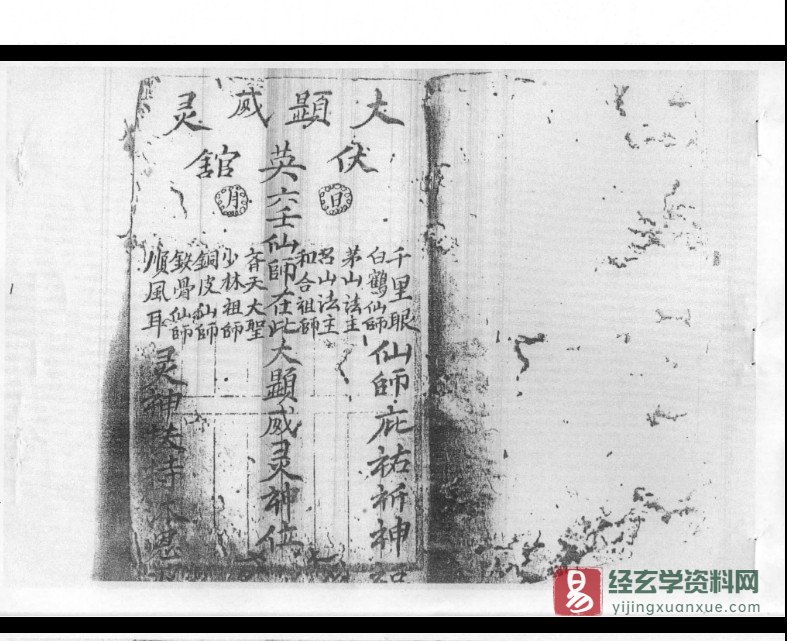 大顕威灵
伏英舘
日 月
千里眼
白鶴仙師
茅山法主
吕山法主
和合祖師
六壬仙師在此大顕威灵神位
齐天大聖
少林祖師
銅皮仙師
鉄骨仙師
順風耳
仙師庇祐祈神
灵神扶持
经玄学资料网
yijingxuanxue.com
易